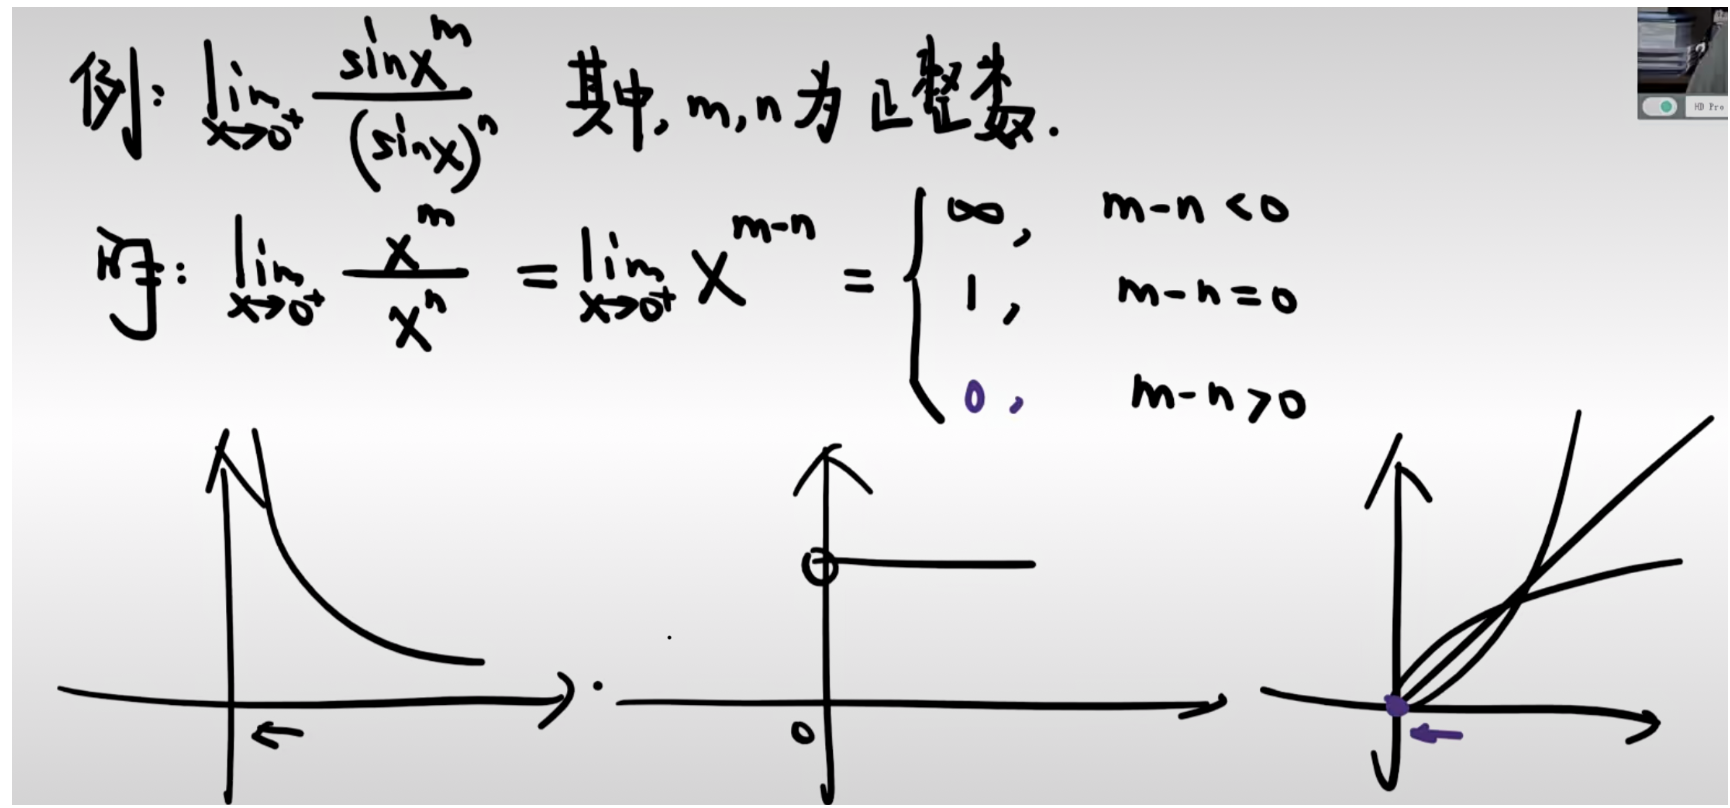 例: lim x→0⁺ sinx^m / (sinx)^n 其中, m,n为正整数.
lim x→0⁺ x^m / x^n = lim x→0⁺ x^(m-n) = { ∞, m-n<0
1, m-n=0
0, m-n>0
0
HD Pro